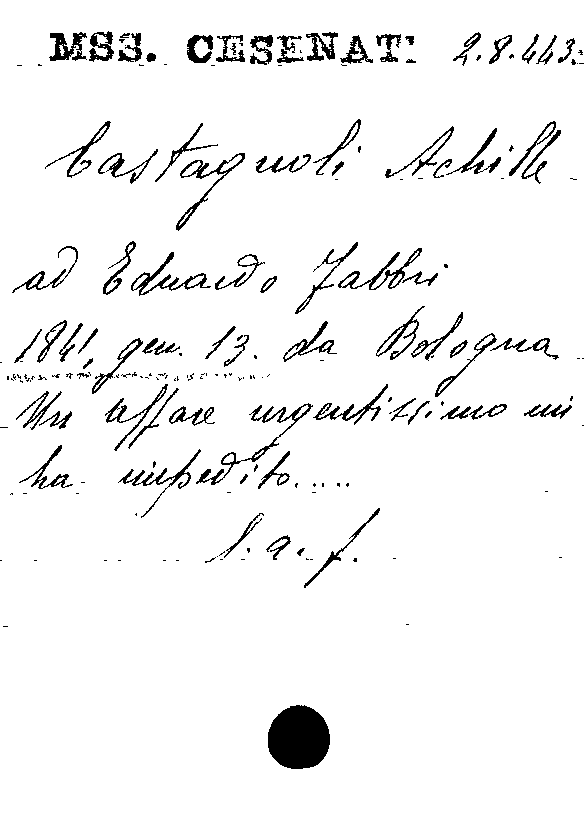 MSS. CESENATI 2.8.443.
Castagnoli Achille
ad Eduardo Fabbri
1841, gen. 13. da Bologna
Un affare urgentissimo mi
ha impedito.....
l. a. f.